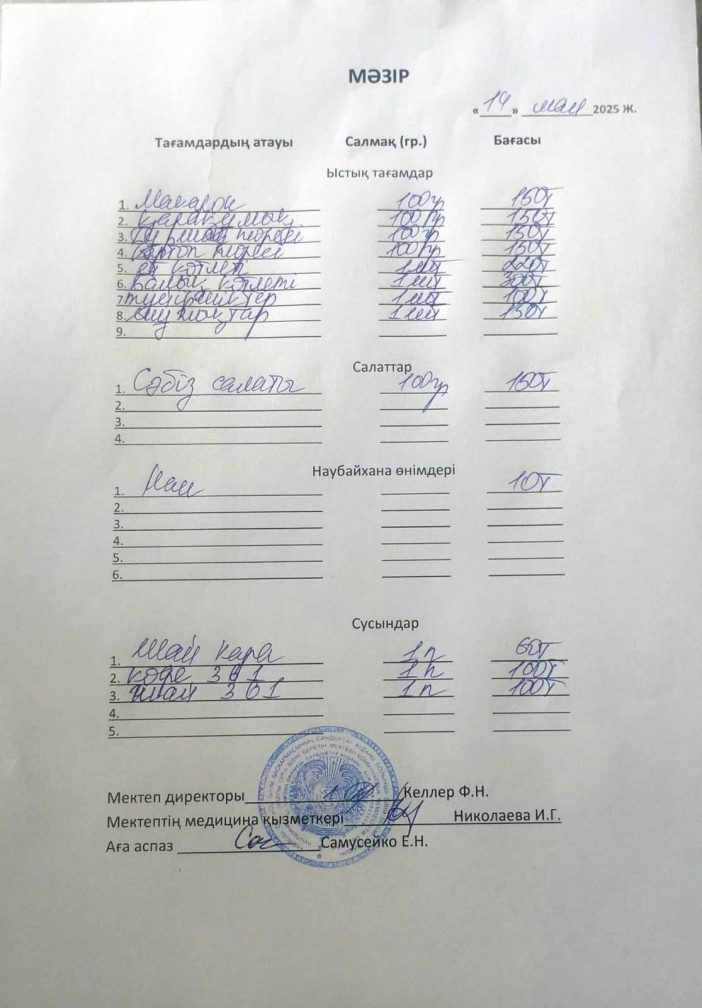 МӘЗІР
«14» май 2025 Ж.
Тағамдардың атауы Салмақ (гр.) Бағасы
Ыстық тағамдар
1. Макарон 100гр 150т
2. қарақұмық 100гр 150т
3. бұршақ пюреси 100гр 150т
4. картоп пюреси 100гр 150т
5. ет котлет 1шт
6. балық котлеті 1шт 300т
7. тефтельктер 1шт 100т
8. 1шт 150т
9.
Салаттар
1. Сәбіз салаты 100гр 150т
2.
3.
4.
Наубайхана өнімдері
1. Нан 10т
2.
3.
4.
5.
6.
Сусындар
1. Шай кара 1п 60т
2. кофе 3 в 1 1п 100т
3. шай 3 в 1 1п 100т
4.
5.
Мектеп директоры Келлер Ф.Н.
Мектептің медицина қызметкері Николаева И.Г.
Аға аспаз Самусейко Е.Н.